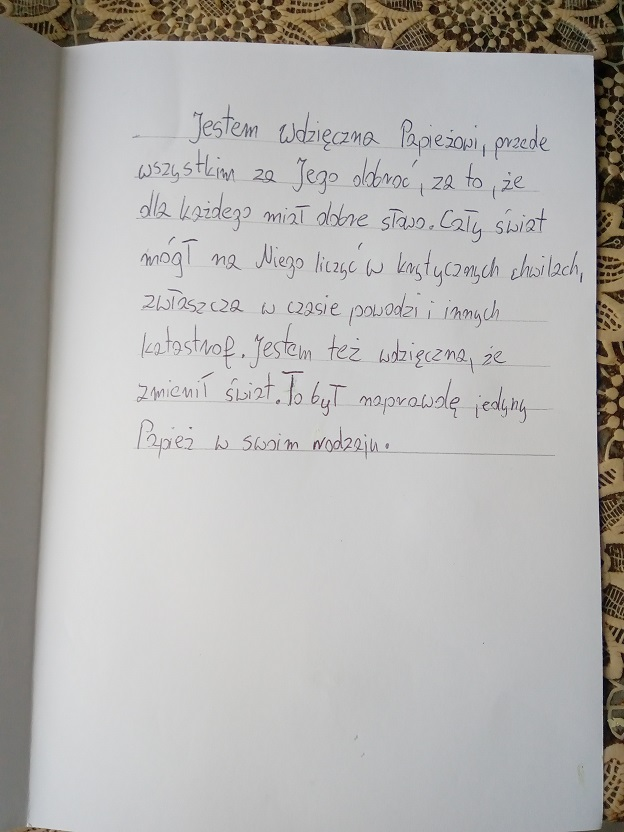 Jestem wdzięczna Papieżowi, przede
wszystkim za Jego dobroć, za to, że
dla każdego miał dobre słowo. Cały świat
mógł na Niego liczyć w krytycznych chwilach,
zwłaszcza w czasie powodzi i innych
katastrof. Jestem też wdzięczna, że
zmienił świat. To był naprawdę jedyny
Papież w swoim rodzaju.